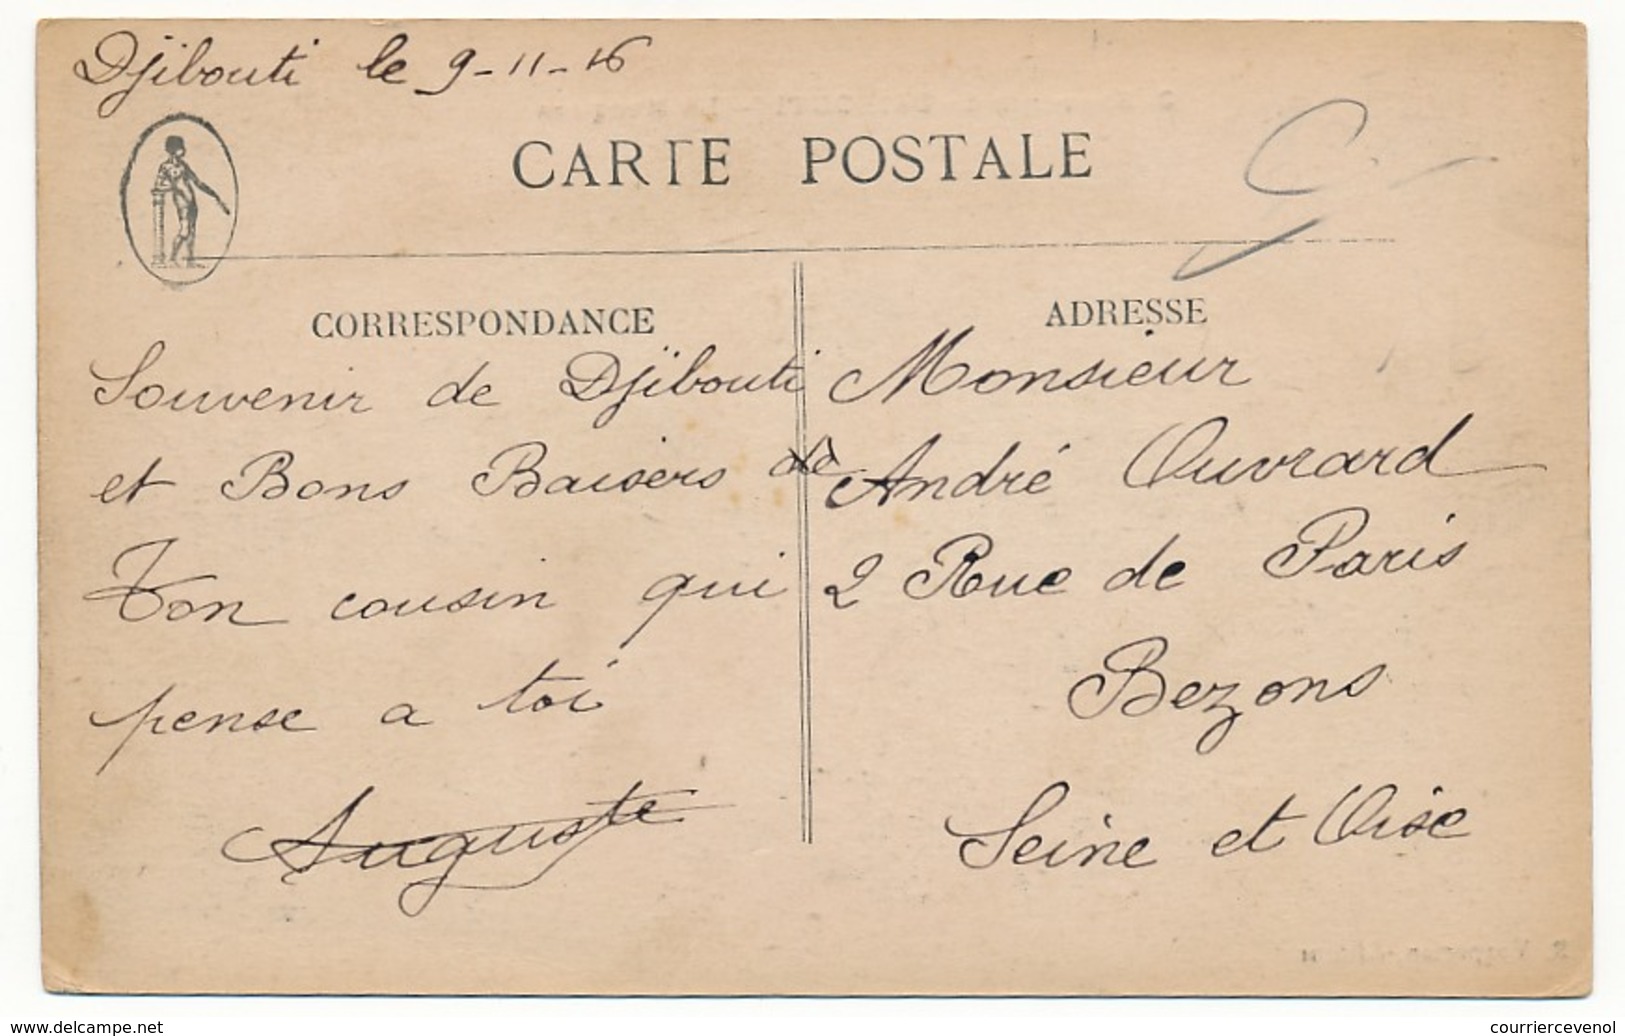 Djibouti le 9-11-16
CARTE POSTALE
CORRESPONDANCE
Souvenir de Djibouti
et Bons Baisers de
Ton cousin qui
pense a toi
Auguste
ADRESSE
Monsieur
André Ouvrard
2 Rue de Paris
Bezons
Seine et Oise
www.delcampe.net
courriercevenol